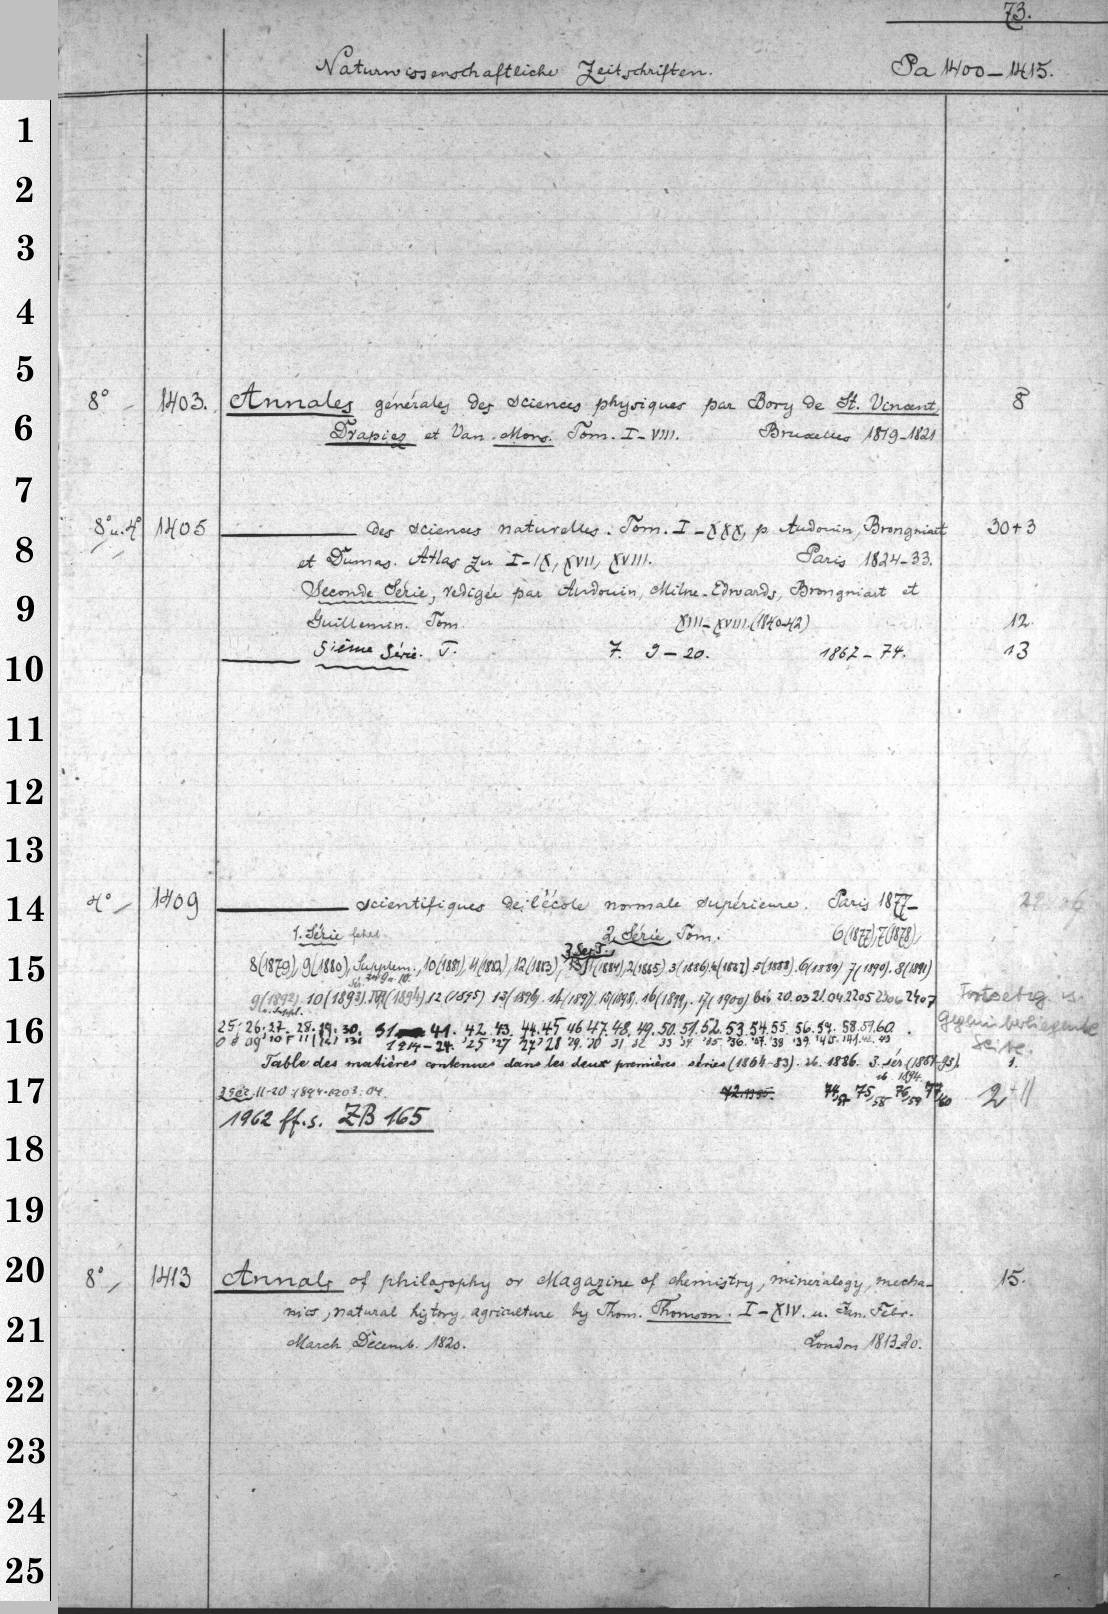 73.
Naturwissenschaftliche Zeitschriften. Pa 1400–1415.
1
2
3
4
5
8° 1403. Annales générales des sciences physiques par Bory de St. Vincent, 8
6
Drapiez et Van Mons. Tom. I–VIII. Bruxelles 1819–1821
7
8° u. 4° 1405 des sciences naturelles. Tom. I–XXX, p. Audouin, Brongniart 30+3
8
et Dumas. Atlas zu I–IX, XVII, XVIII. Paris 1824–33.
Seconde Série, redigée par Audouin, Milne-Edwards, Brongniart et
9
Guillemin. Tom. XIII–XVIII (1840–42) 12
5ième Série. T. 7. 9–20. 1867–74. 13
10
11
12
13
4° 1409 scientifiques de l'école normale supérieure. Paris 1877–
14
1. Série fehlt. 2. Série, Tom. 6(1877), 7(1878),
3. Ser. T.
15
8(1879), 9(1880), Supplem., 10(1881), 11(1882), 12(1883), 1(1884), 2(1885) 3(1886) 4(1887) 5(1888). 6(1889) 7(1890). 8(1891)
9(1892). 10(1893). 11(1894) 12(1895) 13(1896). 14(1897). 15(1898). 16(1899). 17(1900) bis 20.03 21.04 22.05 23.06 24.07
Fortsetzg. s.
gegenüberliegende
Seite.
16
25. 26. 27. 28. 29. 30. 31 41. 42. 43. 44. 45 46 47. 48. 49. 50. 51. 52. 53. 54. 55. 56. 57. 58. 59. 60.
1914–24. '25 '27
Table des matières contenues dans les deux premières séries (1864–83). 1886. 3. sér. 1.
1894.
17
11–20 1894–1903. 04. 74/57 75/58 76/59 77/60 2
1962 ff. s. ZB 165
18
19
20
8° 1413 Annals of philosophy or Magazine of chemistry, mineralogy, mecha- 15.
nics, natural history, agriculture by Thom. Thomson. I–XIV. u. Jan. Febr.
21
March Decemb. 1820. London 1813–20.
22
23
24
25